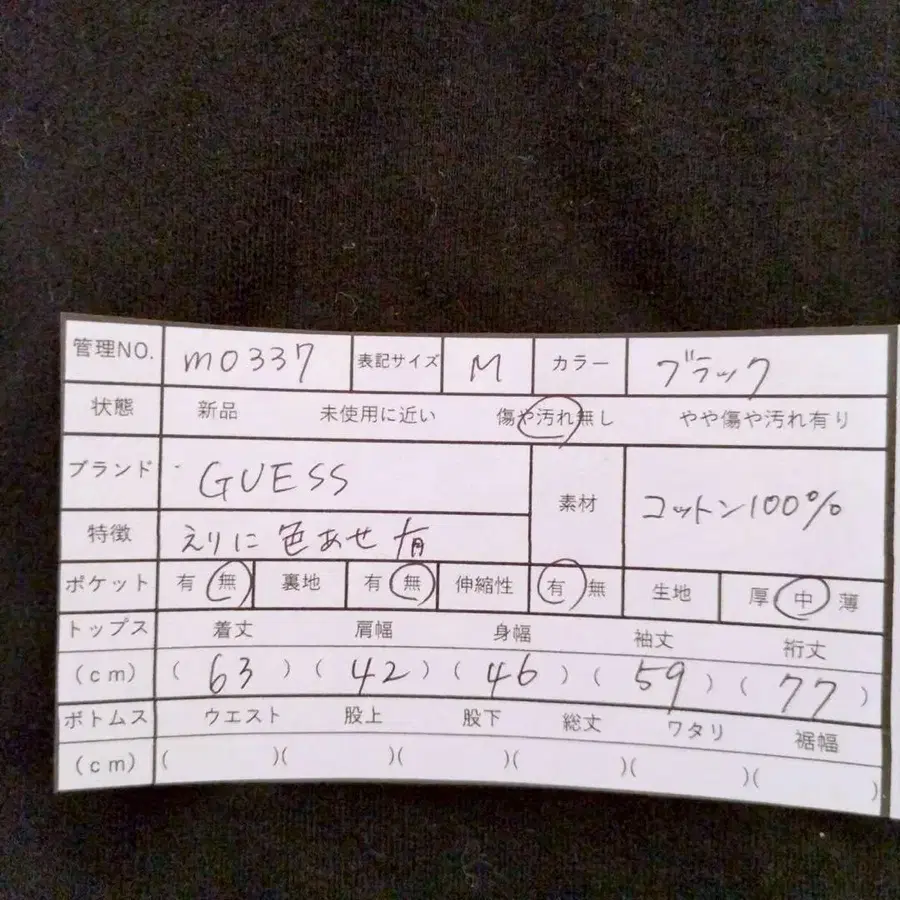 管理NO. m0337 表記サイズ M カラー ブラック
状態 新品 未使用に近い 傷や汚れ無し やや傷や汚れ有り
ブランド GUESS 素材 コットン100%
特徴 えりに色あせ有
ポケット 有 無 裏地 有 無 伸縮性 有 無 生地 厚 中 薄
トップス 着丈 肩幅 身幅 袖丈 裄丈
(cm) (63) (42) (46) (59) (77)
ボトムス ウエスト 股上 股下 総丈 ワタリ 裾幅
(cm) ( )( )( )( )( )( )